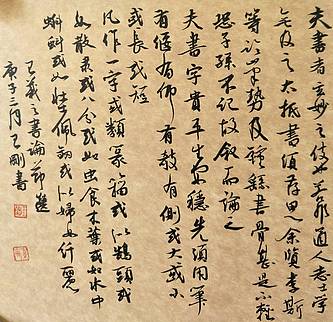 夫书者玄妙之伎也若非通人志士学
无及之大抵书须存思余览李斯
等论笔势及锺繇书骨甚是不轻
恐子孙不记故叙而论之
夫书字贵平正安稳先须用笔
有偃有仰有欹有侧或大或小
或长或短
凡作一字或类篆籀或似鹄头或
如散隶或八分或如虫食木叶或如水中
蝌蚪或如壮士佩剑或似妇女纤丽
王羲之书论节选
庚子三月王刚书